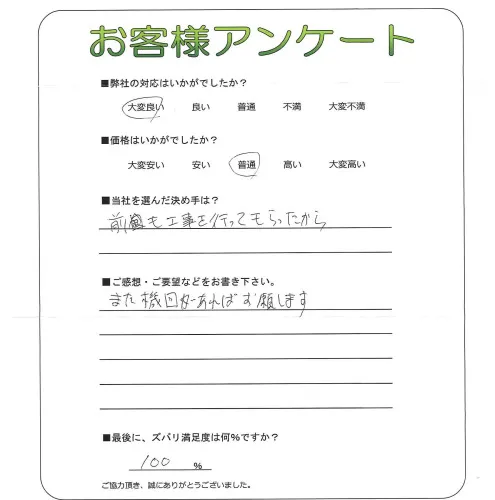 お客様アンケート
■弊社の対応はいかがでしたか？
大変良い 良い 普通 不満 大変不満
■価格はいかがでしたか？
大変安い 安い 普通 高い 大変高い
■当社を選んだ決め手は？
前回も工事を行ってもらったから
■ご感想・ご要望などをお書き下さい。
また機回があればお願します
■最後に、ズバリ満足度は何％ですか？
100 ％
ご協力頂き、誠にありがとうございました。